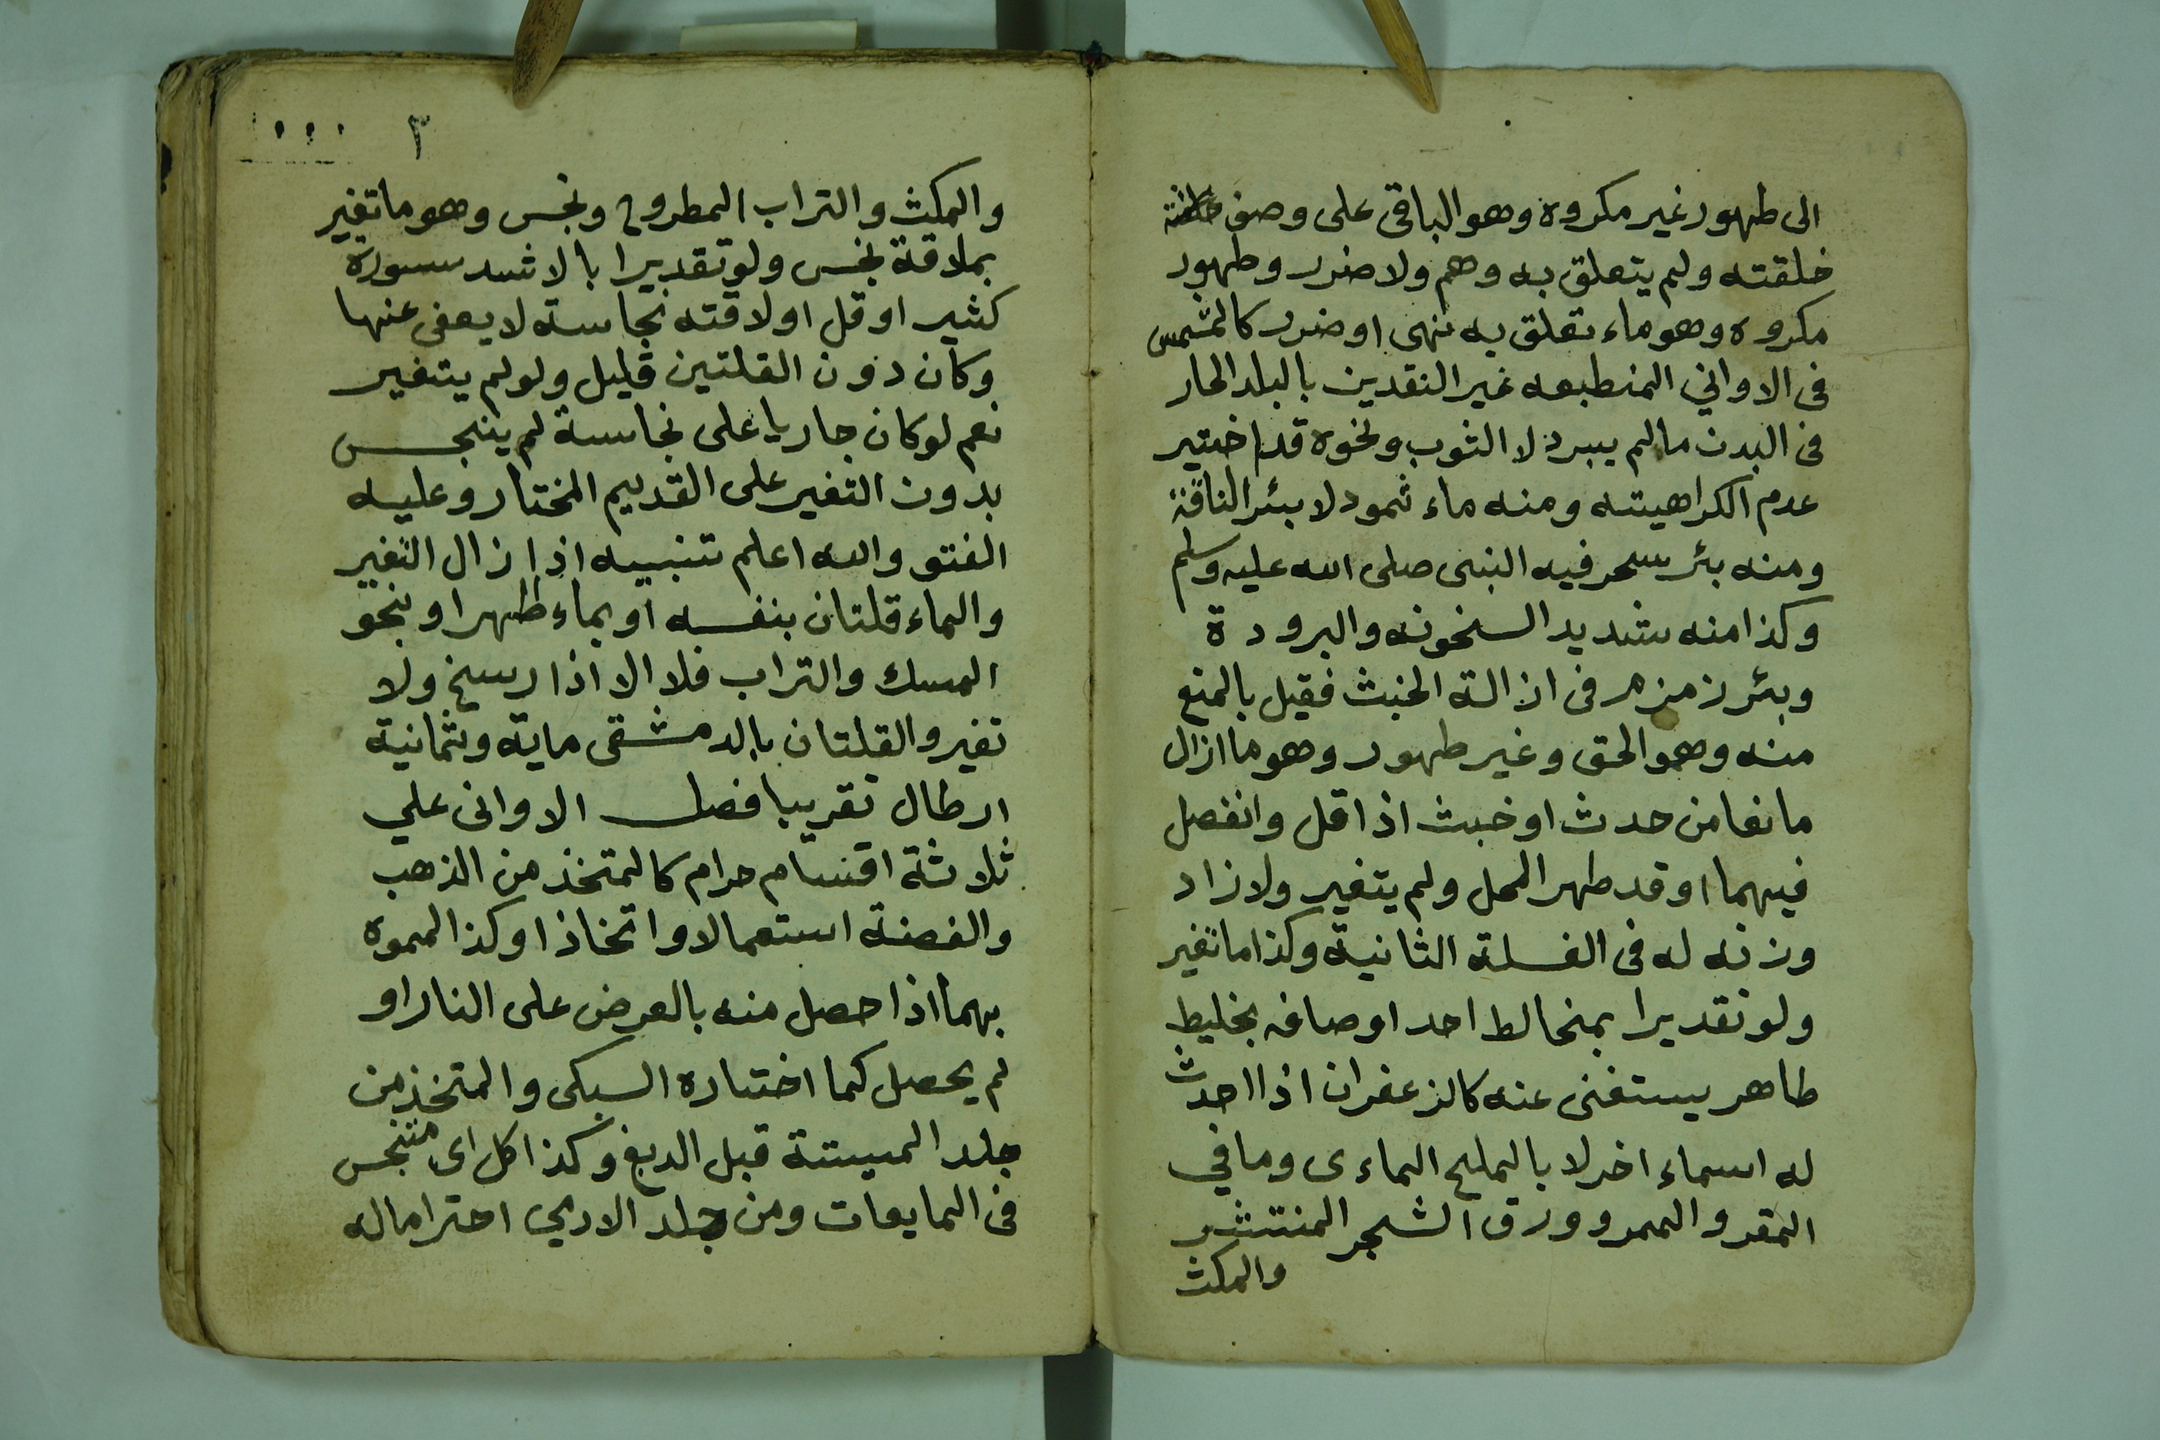 الى طهور غير مكروه وهو الباقى على وصف
خلقته ولم يتعلق به وهم ولا ضرر وطهور
مكروه وهو ماء تعلق به نهى او ضرر كالمشمس
فى الاواني المنطبعه غير النقدين بالبلد الحار
فى البدن مالم يبرد لا الثوب ونحوه قد اختير
عدم الكراهيته ومنه ماء ثمود لا بئر الناقة
ومنه بئر سحر فيه النبى صلى الله عليه وسلم
وكذا منه شديد السخونه والبرودة
وبئر زمزم فى ازالة الخبث فقيل بالمنع
منه وهو الحق وغير طهور وهو ما ازال
مانعا من حدث او خبث اذا قل وانفصل
فيهما وقد طهر المحل ولم يتغير ولا زاد
وزنه له فى الغسلة الثانية وكذا ما تغير
ولو تقديرا بمخالط احد اوصافه بخليط
طاهر يستغنى عنه كالزعفران اذا احدث
له اسماء اخر لا بالملح الماءى وما في
المقر والممر وورق الشجر المنتثر
والمكث
٣
والمكث والتراب المطروح ونجس وهو ما تغير
بملاقة نجس ولو تقديرا بالاشد سورة
كثير او قل او لاقته نجاسة لا يعفى عنها
وكان دون القلتين قليل ولو لم يتغير
نعم لو كان جاريا على نجاسة لم ينجس
بدون التغير على القديم المختار وعليه
الفتو والله اعلم تنبيه اذا زال التغير
والماء قلتان بنفسه او بماء طهر او بنحو
المسك والتراب فلا الا اذا رسخ ولا
تغير والقلتان بالدمشقى ماية وثمانية
ارطال تقريبا فصل الاوانى علي
ثلاثة اقسام حرام كالمتخذ من الذهب
والفضة استعمالا واتخاذا وكذا المموه
بهما اذا حصل منه بالعرض على النار او
لم يحصل كما اختاره السبكى والمتخذ من
جلد الميتة قبل الدبغ وكذا كل اى متنجس
فى المايعات ومن جلد الادمي احتراما له